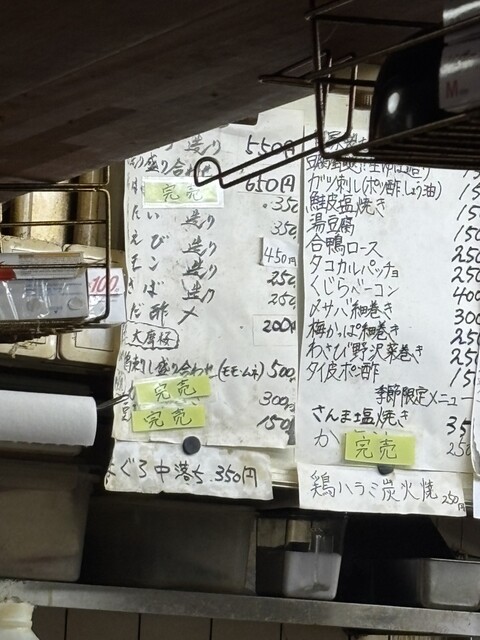 造り 550円
盛り合わせ 650円
完売 350
たい 造り 350
えび 造り 450円
造り 250
さば 造り 250
酢〆 200円
大庫桜
刺し盛り合わせ(モモ・ムネ) 500
完売 300円
完売 150
まぐろ中落ち 350円
ガツ刺し(ポン酢、しょう油) 15
鮭皮塩焼き 15
湯豆腐 15
合鴨ロース 250
タコカルパッチョ 250
くじらベーコン 400
〆サバ細巻き 300
梅かっぱ細巻き 250
わさび野沢菜巻き 250
タイ皮ポン酢 15
季節限定メニュー
さんま塩焼き 35
か 完売 250
鶏ハラミ炭火焼 250円
100
M